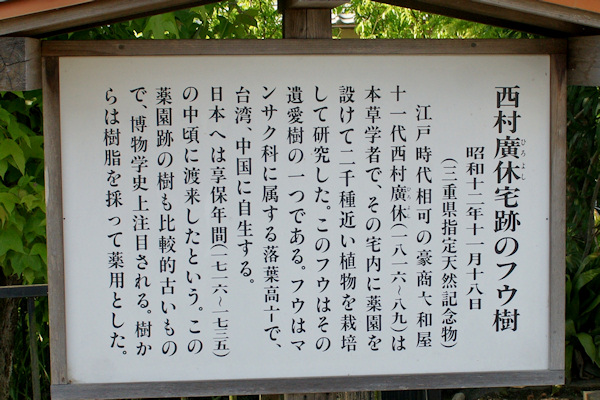 西村廣休宅跡のフウ樹
ひろよし
昭和十二年十一月十八日
（三重県指定天然記念物）
江戸時代相可の豪商大和屋
十一代西村廣休（一八一六〜八九）は
ひろよし
本草学者で、その宅内に薬園を
設けて二千種近い植物を栽培
して研究した。このフウはその
遺愛樹の一つである。フウはマ
ンサク科に属する落葉高十で、
台湾、中国に自生する。
日本へは享保年間（一七一六〜一七三五）
の中頃に渡来したという。この
薬園跡の樹も比較的古いもの
で、博物学史上注目される。樹か
らは樹脂を採って薬用とした。